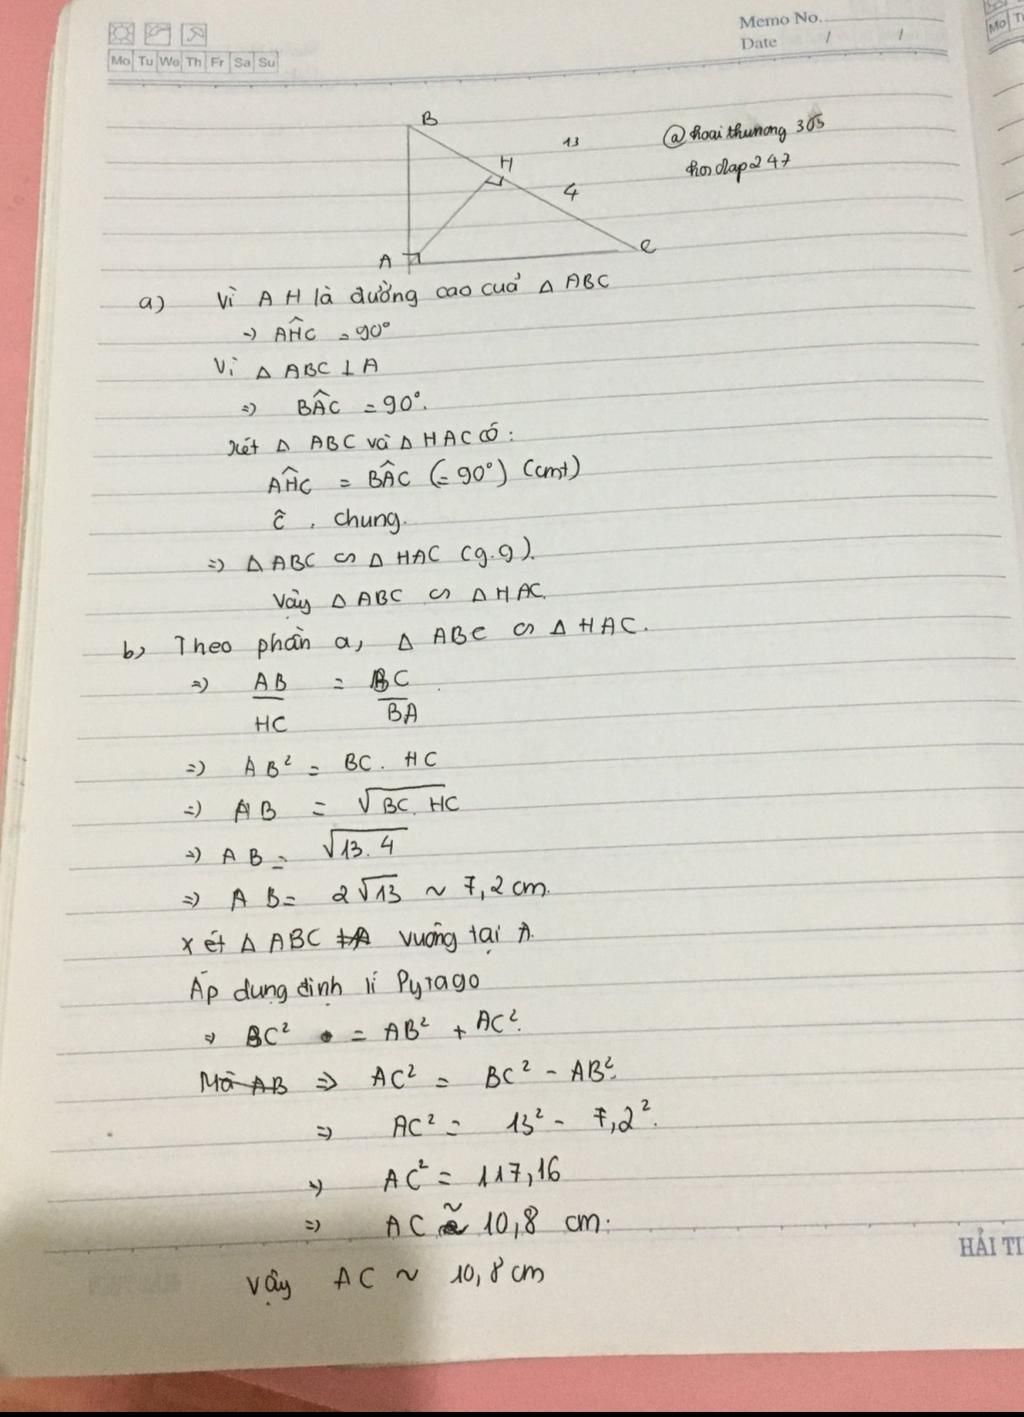 Memo No.
Date / /
Mo Tu We Th Fr Sa Su
Mo Tu
B
13
@hoaithunong 305
hoidap247
H
4
A
C
a) Vì AH là đường cao cuả △ ABC
→ AĤC = 90°
Vì △ ABC ⊥ A
=> BÂC = 90°.
Xét △ ABC và △ HAC có:
AĤC = BÂC (= 90°) (cmt)
Ĉ , chung.
=> △ ABC ∽ △ HAC (g.g).
Vậy △ ABC ∽ △ HAC.
b, Theo phần a, △ ABC ∽ △ HAC.
=> AB/HC = BC/BA
=> AB² = BC. HC
=> AB = √BC. HC
=> AB = √13. 4
=> AB = 2√13 ~ 7,2 cm.
Xét △ ABC ⊥A vuông tại A.
Áp dụng định lí Pytago
=> BC² = AB² + AC².
Mà AB => AC² = BC² - AB².
=> AC² = 13² - 7,2².
=> AC² = 117,16
=> AC ~ 10,8 cm.
HẢI TI
Vậy AC ~ 10,8 cm